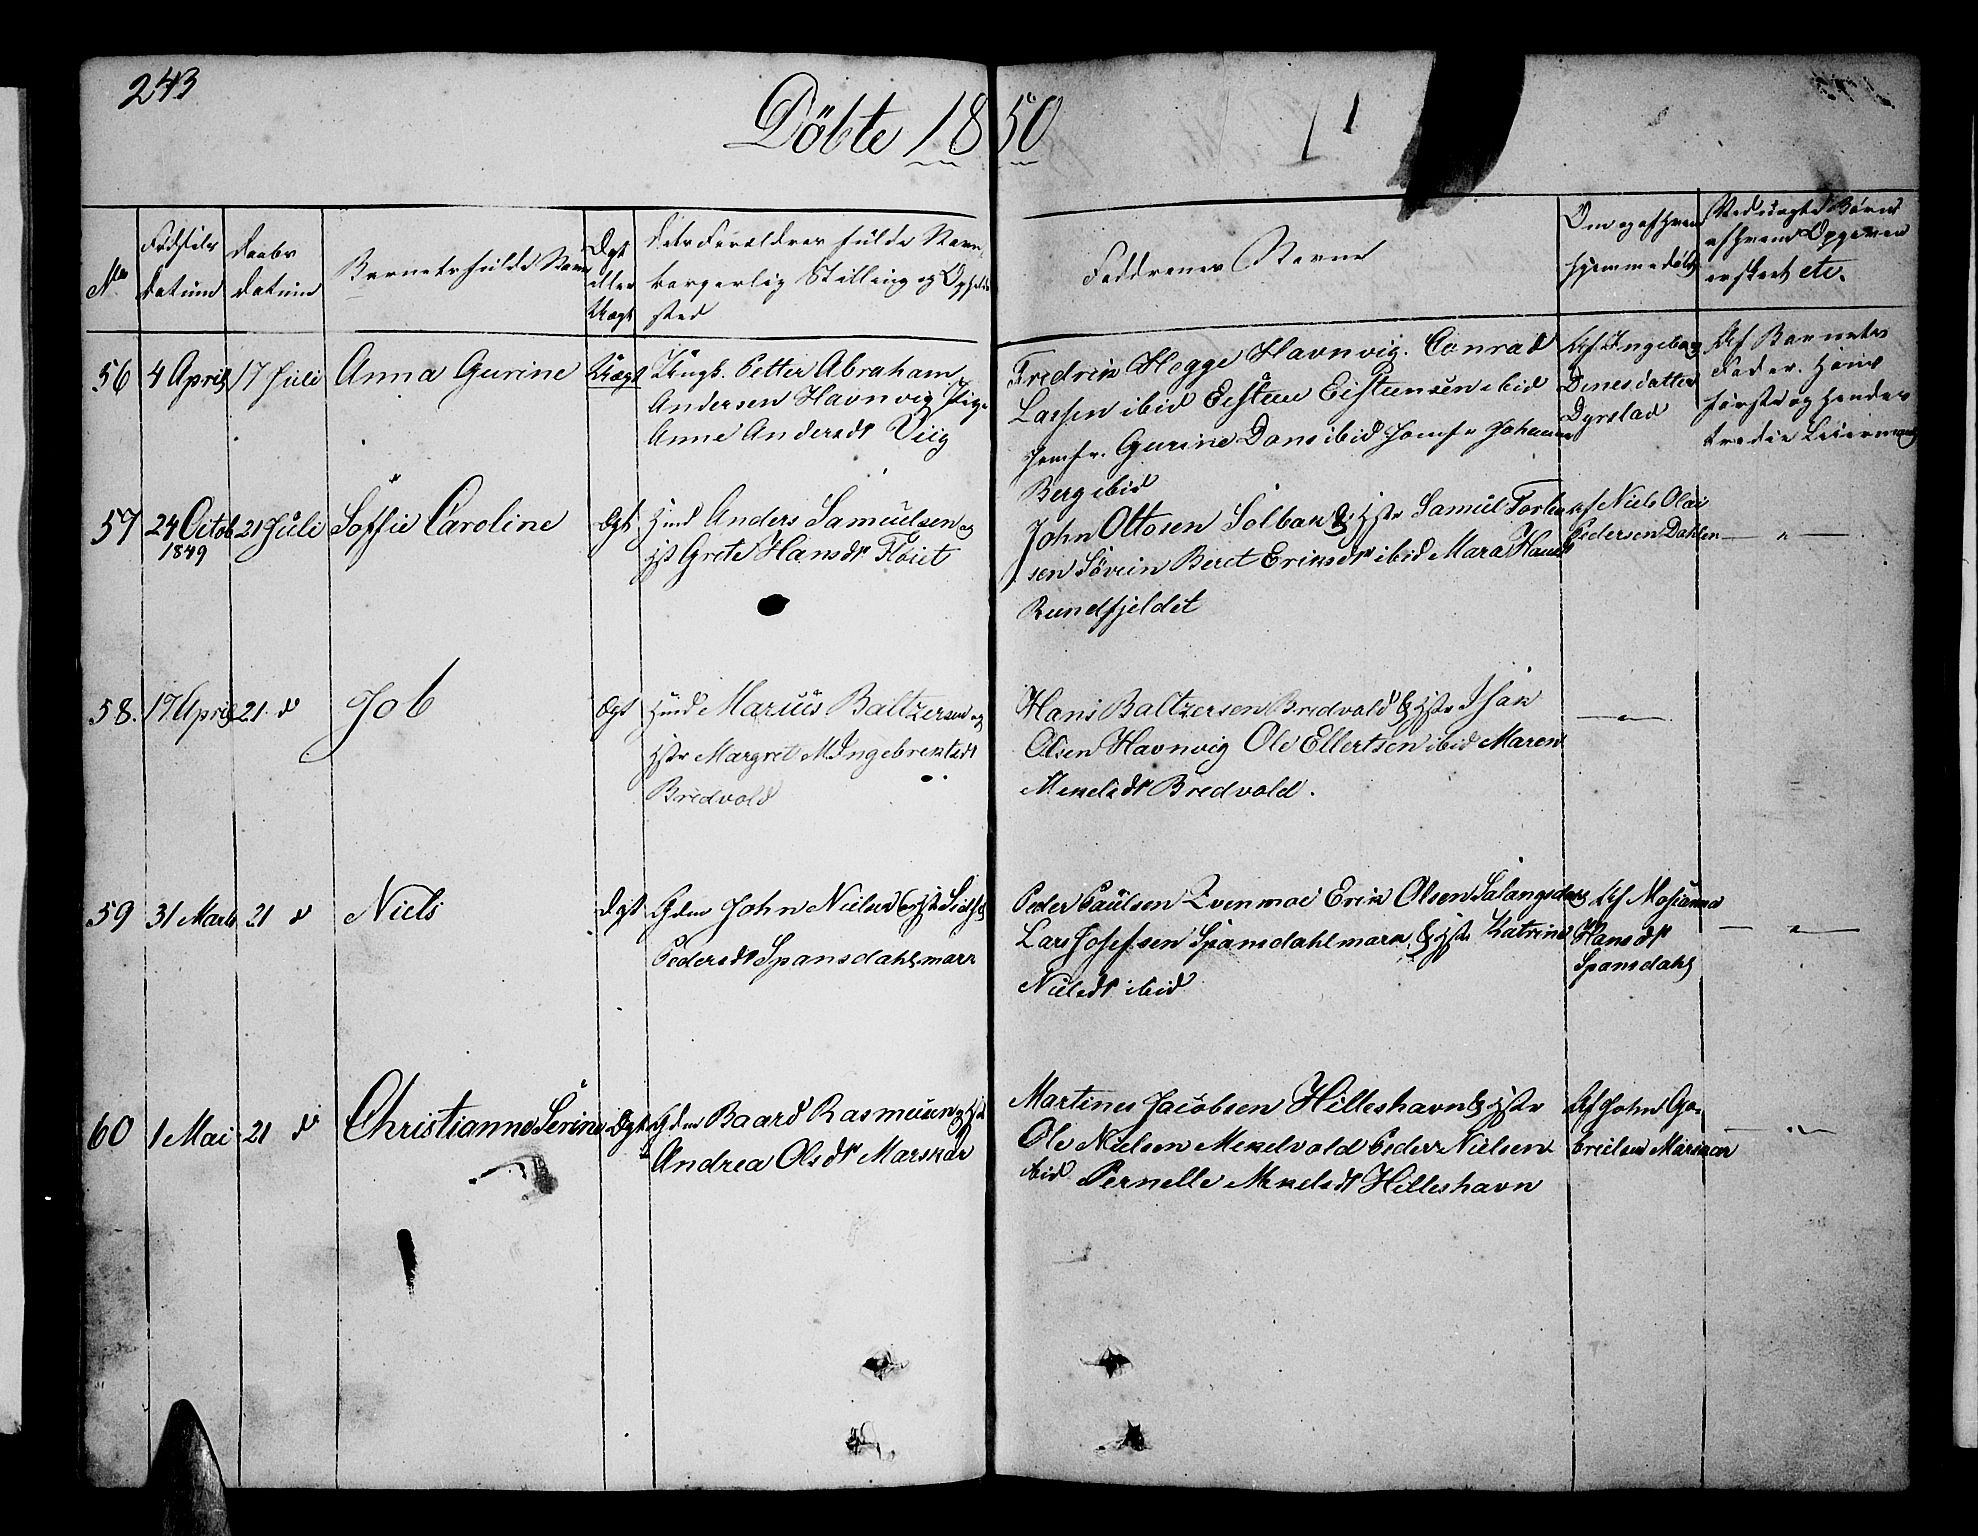 243
Döbte 1850
No
Fødsels
Datum
Daabs
Datum
Barnets fulde Navn
Ægt
eller
Uægt
Dets Forældres fulde Navn,
borgerlig Stilling og Opholds
sted
Faddrenes Navne
Om og af hvem
hjemmedøbt
Ved uægte Børn
af hvem Opgiven
er skeet etc.
56 4 April 17 Juli Anna Gurine Uægt Ungk. Petter Abraham
Andersen Havnvig Pige
Anne Andersdt Viig
Fredrik Hegge Havnvig. Conrad
Larsen ibid Eisten Eistensen ibid
Jomfr. Gurine Dons ibid Jomfr Johanne
Berg ibid
Af Ingeborg
Denesdatter
Dyrstad
Af Barnets
Fader. Hans
første og hendes
tredie Leiermaal
57 24 Octob 21 Juli Soffie Caroline Ægt Hmd Anders Samuelsen og
1849
Hst Grete Hansdt Fløiet
John Ottosen Solbak & Hstr Samul Torle
sen Sövein Beret Eriksdt ibid Mara Hansdt
Rundfjeldet
Af Niels Olai
Pedersen Dahlen — " —
58. 17 April 21 d Job Ægt Hmd Marius Baltzersen og
Hstr Margret M. Ingebrektsdt
Bredvold
Hans Baltzersen Bredvold & Hstr Isak
Olsen Havnvig Ole Ellertsen ibid Maren
Mekelsdt Bredvold.
— " —
59 31 Marts 21 d Niels Ægt Gdm John Nielsen og Hstr
Pedersdt Spansdahlsmark
Peder Paulsen Qvenmoe Erik Olsen Salangsdalen
Lars Josefsen Spansdahlmark, & Hstr Katrine
Nielsdt ibid
Af Mosianna
Hansdt
Spansdahl
— " —
60 1 Mai 21 d Christianne Serine Ægt Gdm Baard Rasmusen og Hst
Andrea Olsdt Marskar
Martines Jacobsen Hilleshavn & Hstr
Ole Nielsen Mekelvold Peder Nielsen
ibid Pernelle Mekelsdt Hilleshavn
Af John Ga-
brielsen Marskar
— " —